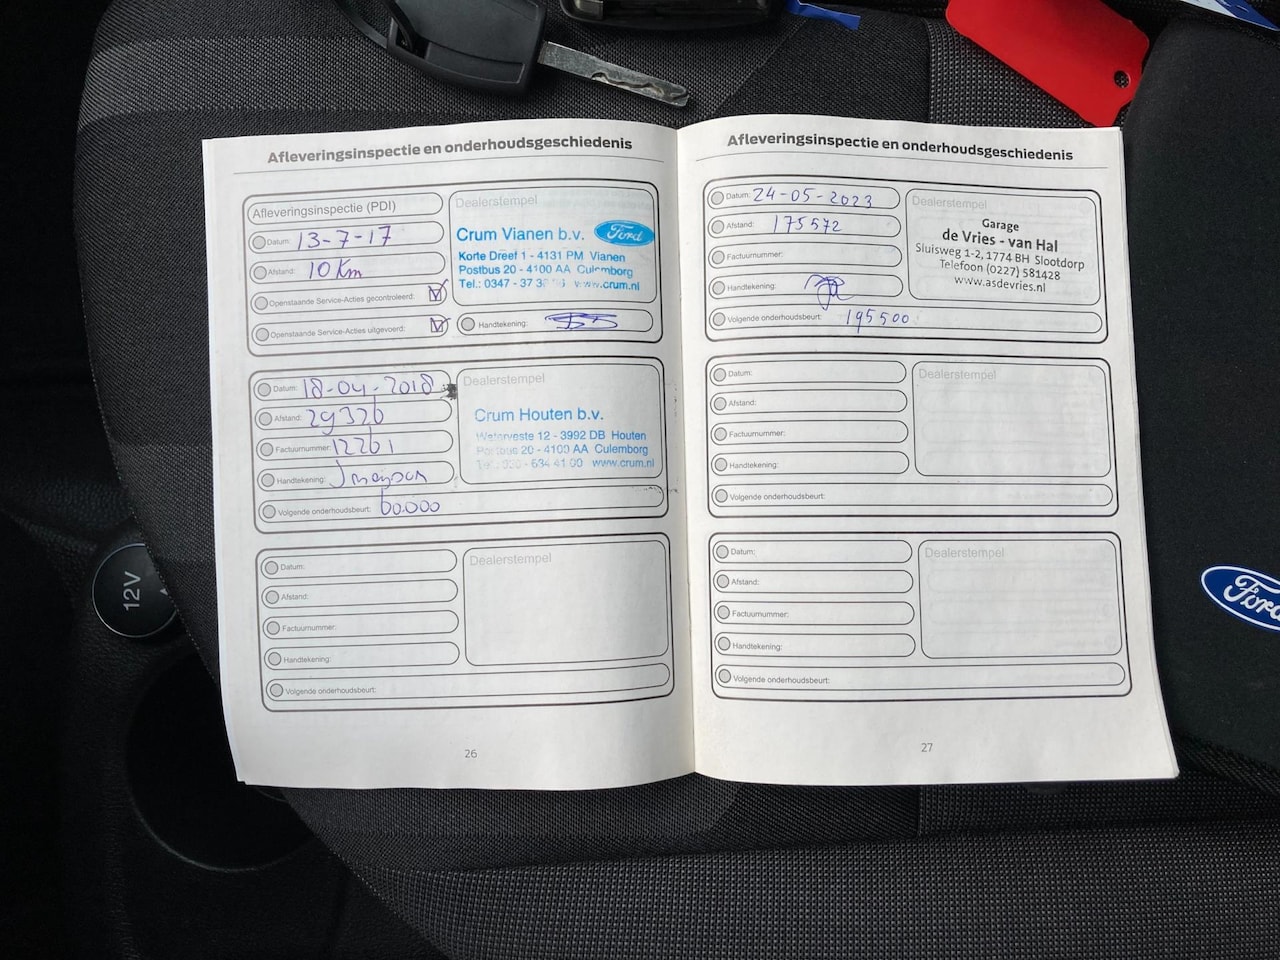 Afleveringsinspectie en onderhoudsgeschiedenis
Afleveringsinspectie (PDI)
Datum: 13-7-17
Afstand: 10 Km
Openstaande Service-Acties gecontroleerd:
Openstaande Service-Acties uitgevoerd:
Dealerstempel
Crum Vianen b.v. Ford
Korte Dreef 1 - 4131 PM Vianen
Postbus 20 - 4100 AA Culemborg
Tel.: 0347 - 37 www.crum.nl
Handtekening:
Datum: 18-04-2018
Afstand: 29326
Factuurnummer: 12261
Handtekening:
Volgende onderhoudsbeurt: 60.000
Dealerstempel
Crum Houten b.v.
Waterveste 12 - 3992 DB Houten
Postbus 20 - 4100 AA Culemborg
Tel.: 030 - 634 41 00 www.crum.nl
Datum:
Afstand:
Factuurnummer:
Handtekening:
Volgende onderhoudsbeurt:
Dealerstempel
26
Afleveringsinspectie en onderhoudsgeschiedenis
Datum: 24-05-2023
Afstand: 175572
Factuurnummer:
Handtekening:
Volgende onderhoudsbeurt: 195500
Dealerstempel
Garage
de Vries - van Hal
Sluisweg 1-2, 1774 BH Slootdorp
Telefoon (0227) 581428
www.asdevries.nl
Datum:
Afstand:
Factuurnummer:
Handtekening:
Volgende onderhoudsbeurt:
Dealerstempel
Datum:
Afstand:
Factuurnummer:
Handtekening:
Volgende onderhoudsbeurt:
Dealerstempel
27
12V
Ford